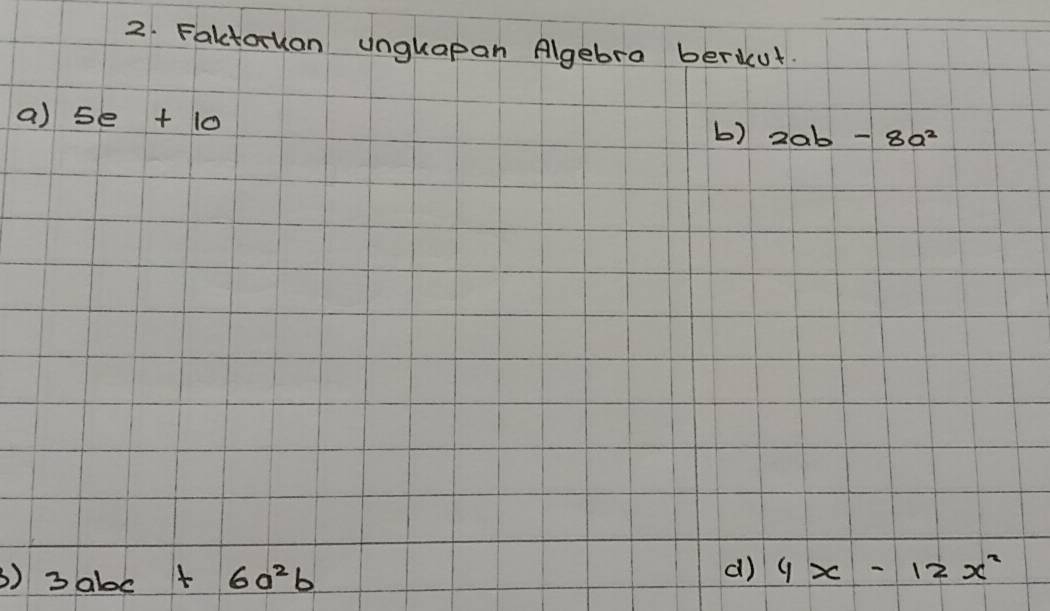 2. Faktorkan ungkapan Algebra berikut.
a) 5e + 10
b) 2ab - 8a²
3) 3abc + 6a²b
d) 4x - 12x²